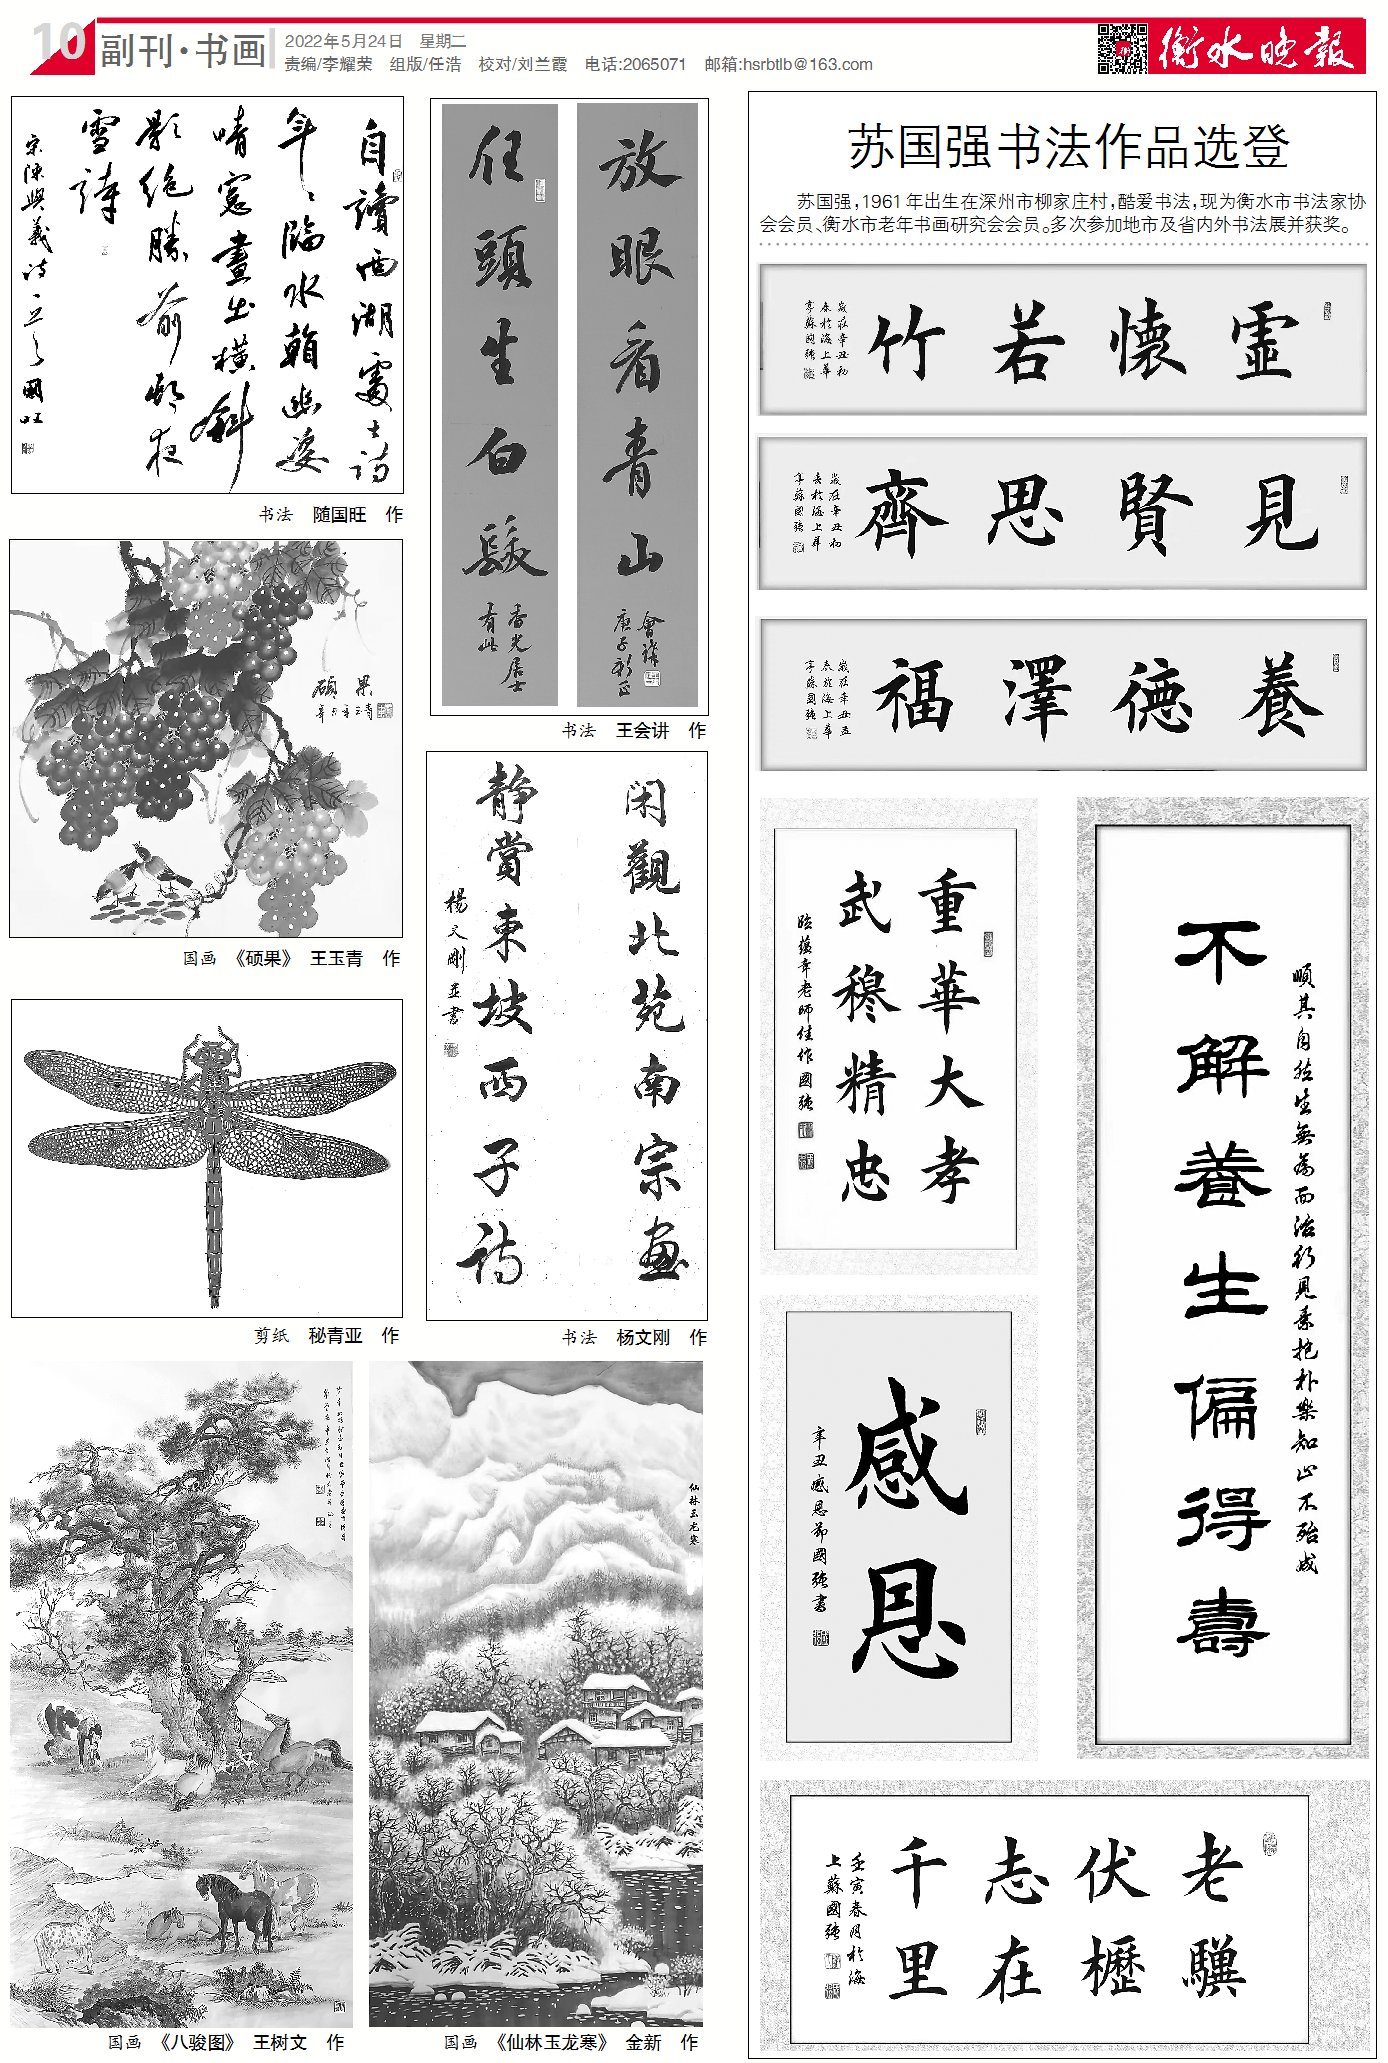 10 副刊·书画
2022年5月24日 星期二
责编/李耀荣 组版/任浩 校对/刘兰霞 电话:2065071 邮箱:hsrbtlb@163.com
衡水晚報
自讀西湖處士詩
年年臨水看幽姿
晴窗畫出橫斜
影絕勝前村夜
雪詩
宋陳與義詩
國旺
书法 随国旺 作
放眼看青山
任頭生白髮
香光居士
有此
庚子新正
會講
书法 王会讲 作
硕果
国画 《硕果》 王玉青 作
闲觀北苑南宗画
静賞東坡西子诗
楊文刚並書
书法 杨文刚 作
剪纸 秘青亚 作
国画 《八骏图》 王树文 作
仙林玉龙寒
国画 《仙林玉龙寒》 金新 作
苏国强书法作品选登
苏国强，1961年出生在深州市柳家庄村，酷爱书法，现为衡水市书法家协
会会员、衡水市老年书画研究会会员。多次参加地市及省内外书法展并获奖。
虚懷若竹
歲在辛丑初
春於海上華
亭蘇國强
見賢思齊
歲在辛丑初
春於海上華
亭蘇國强
養德澤福
歲在辛丑孟
春於海上華
亭蘇國强
重華大孝
武穆精忠
臨蘊章老师佳作國强
不解養生偏得壽
順其自然生無為而治行見素抱朴樂知止不殆成
感恩
辛丑感恩節國强書
老驥
伏櫪
志在
千里
壬寅春月於海
上蘇國强